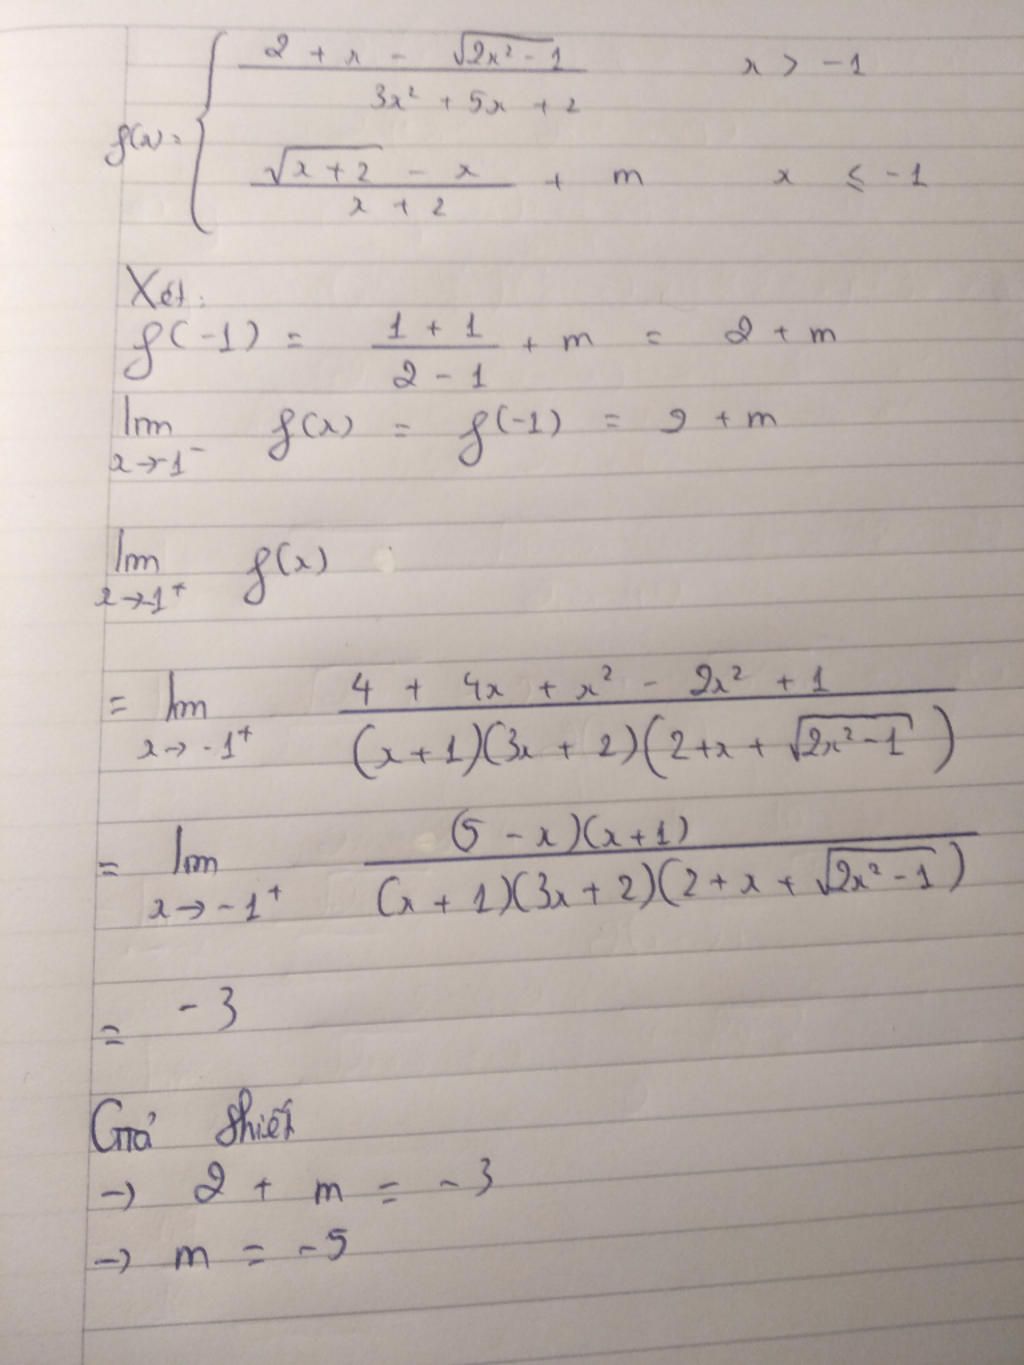 f(x) = { (2 + x - √(2x² - 1)) / (3x² + 5x + 2)    x > -1
(√(x + 2) - x) / (x + 2) + m    x ≤ -1
Xét:
f(-1) = (1 + 1) / (2 - 1) + m = 2 + m
lim x→-1⁻ f(x) = f(-1) = 2 + m
lim x→-1⁺ f(x)
= lim x→-1⁺ (4 + 4x + x² - 2x² + 1) / ((x+1)(3x + 2)(2+x + √(2x²-1)))
= lim x→-1⁺ ((5 - x)(x+1)) / ((x + 1)(3x + 2)(2 + x + √(2x² - 1)))
= -3
Giả thiết
→ 2 + m = -3
→ m = -5